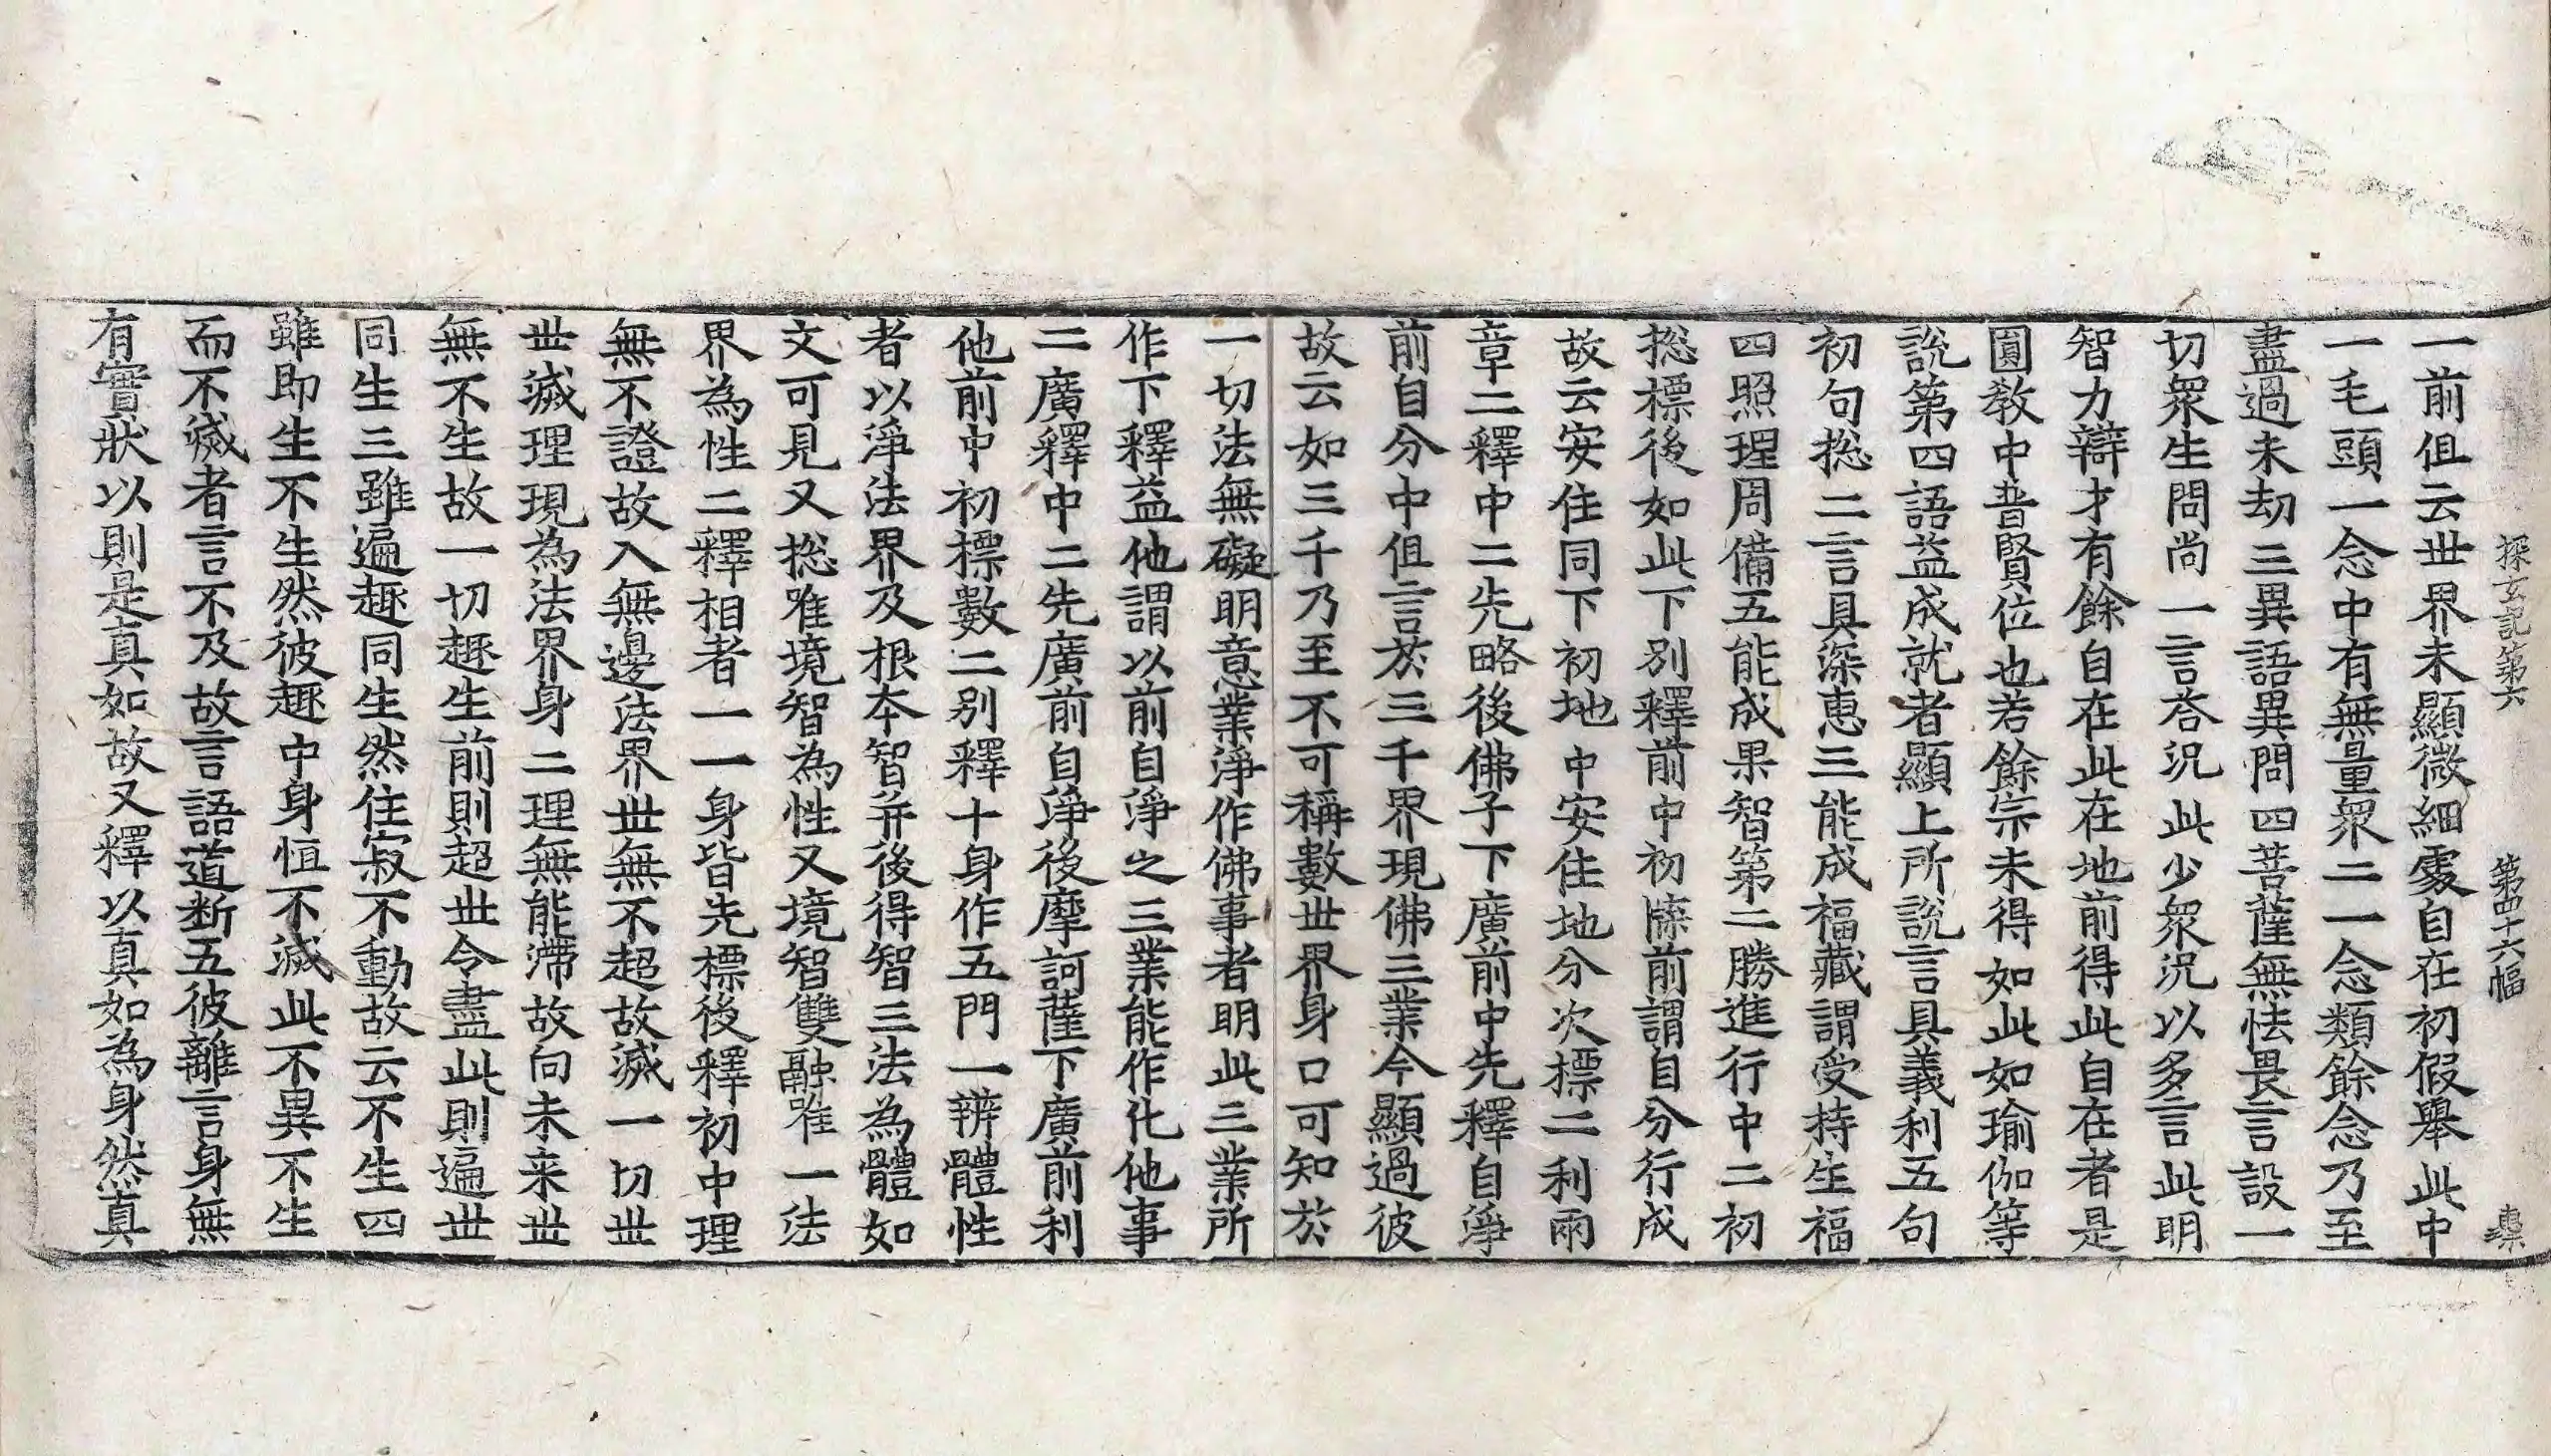 探玄記第六　第四十六幅
一前但云世界未顯微細處自在初假舉此中
一毛頭一念中有無量衆二一念類餘念乃至
盡過未劫三異語異問四菩薩無怯畏言設一
切衆生問尚一言荅況此少衆況以多言此明
智力辯才有餘自在此在地前得此自在者是
圓教中普賢位也若餘宗未得如此如瑜伽等
說第四語益成就者顯上所說言具義利五句
初句捴二言具深恵三能成福藏謂受持生福
四照理周備五能成果智第二勝進行中二初
捴標後如此下別釋前中初牒前謂自分行成
故云安住同下初地中安住地分次標二利兩
章二釋中二先略後佛子下廣前中先釋自淨
前自分中但言於三千界現佛三業今顯過彼
故云如三千乃至不可稱數世界身口可知於
一切法無礙明意業淨作佛事者明此三業所
作下釋益他謂以前自淨之三業能作化他事
二廣釋中二先廣前自淨後摩訶薩下廣前利
他前中初標數二別釋十身作五門一辨體性
者以淨法界及根本智并後得智三法為體如
文可見又捴唯境智為性又境智雙融唯一法
界為性二釋相者一一身皆先標後釋初中理
無不證故入無邊法界世無不超故滅一切世
世滅理現為法界身二理無能滯故向未来世
無不生故一切趣生前則超世今盡此則遍世
同生三雖遍趣同生然住寂不動故云不生四
雖即生不生然彼趣中身恒不滅此不異不生
而不滅者言不及故言語道断五彼離言身無
有實狀以則是真如故又釋以真如為身然真